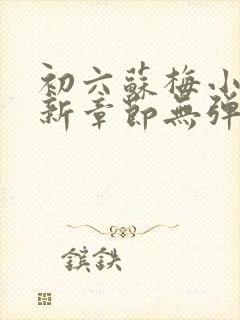 初六蘇梅小
新章節無彈
鑌鉄